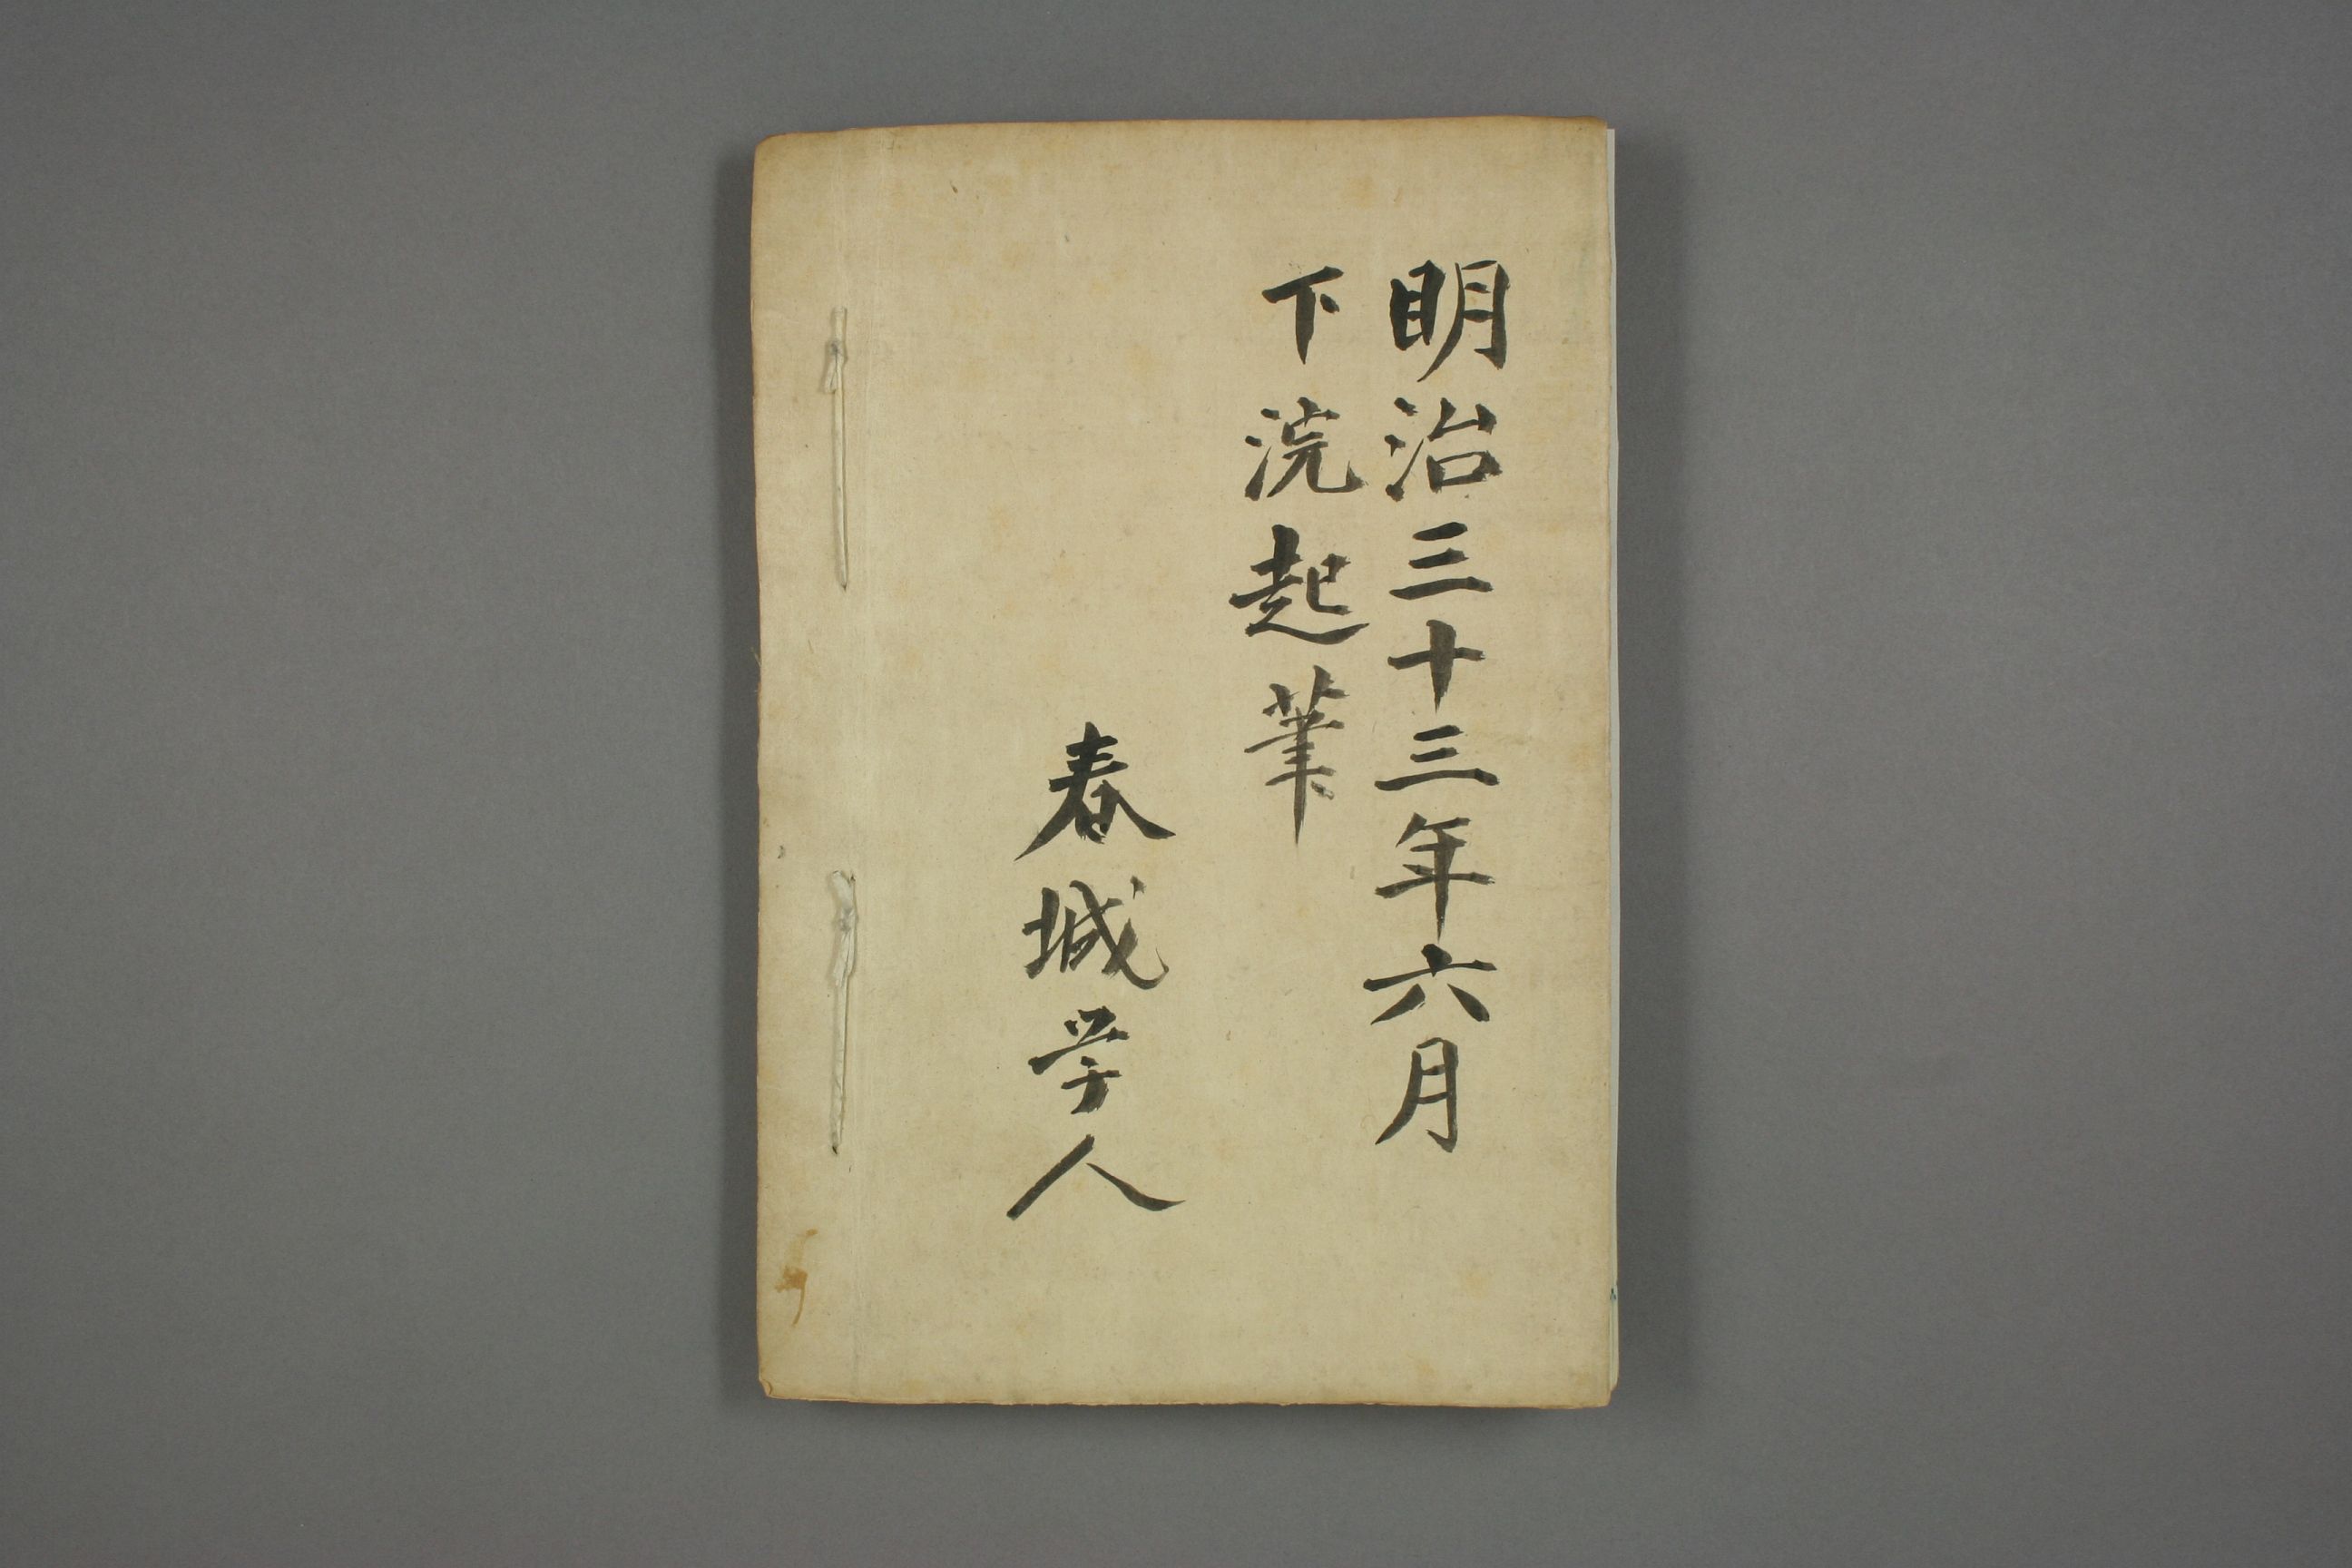 明治三十三年六月
下浣起筆
春城学人